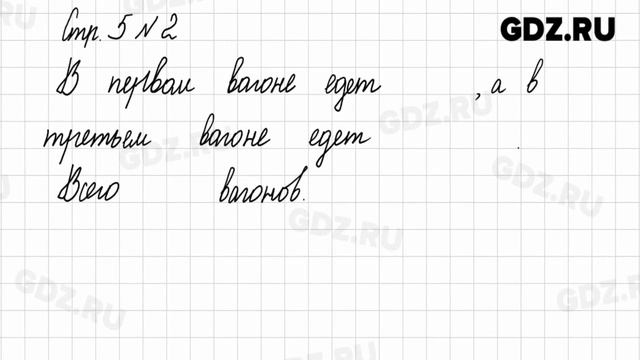 Стр. 5 N 2
GDZ.RU
В первом вагоне едет , а в
третьем вагоне едет .
Всего вагонов.
GDZ.RU
GDZ.RU
GDZ.RU
GDZ.RU
GDZ.RU
GDZ.RU